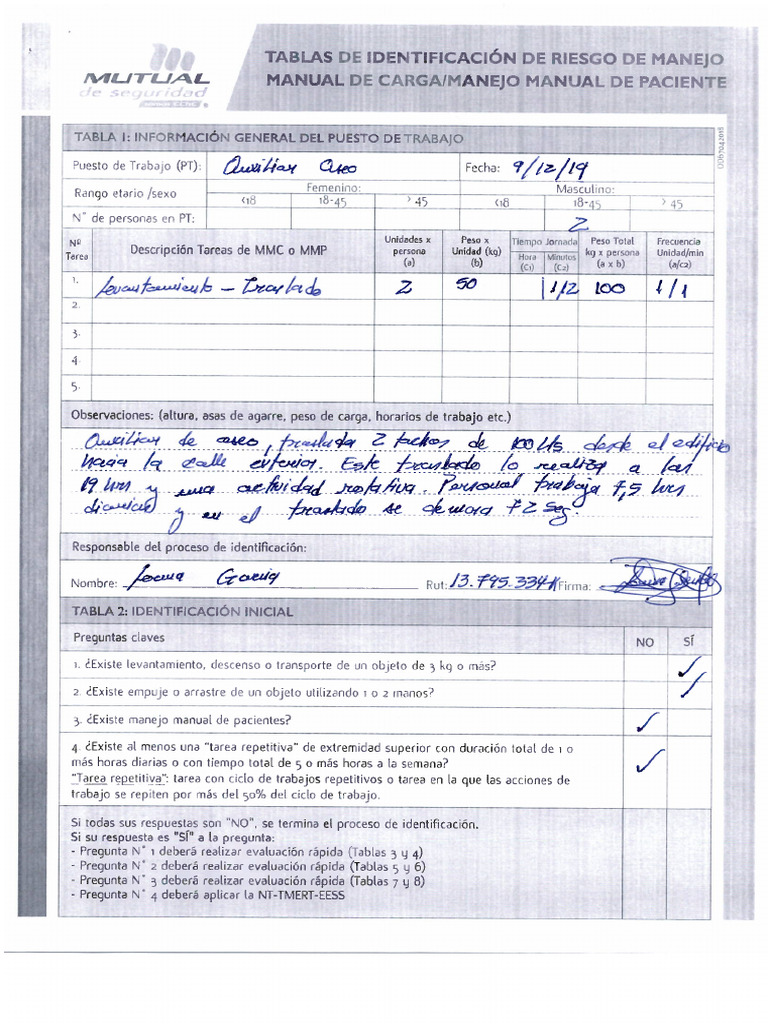 MUTUAL
de seguridad
TABLAS DE IDENTIFICACIÓN DE RIESGO DE MANEJO
MANUAL DE CARGA/MANEJO MANUAL DE PACIENTE
TABLA 1: INFORMACIÓN GENERAL DEL PUESTO DE TRABAJO
Puesto de Trabajo (PT): Auxiliar Aseo Fecha: 9/12/19
Rango etario /sexo Femenino: Masculino:
<18 18-45 > 45 <18 18-45 > 45
N° de personas en PT: 2
Nº Tarea Descripción Tareas de MMC o MMP Unidades x persona (a) Peso x Unidad (kg) (b) Tiempo Jornada Hora (C1) Minutos (C2) Peso Total kg x persona (a x b) Frecuencia Unidad/min (a/c2)
1. Levantamiento - Traslado 2 50 1/2 100 1/1
2.
3.
4.
5.
Observaciones: (altura, asas de agarre, peso de carga, horarios de trabajo etc.)
Auxiliar de aseo, traslada 2 tachos de 100 lts desde el edificio
hacia la calle exterior. Este traslado lo realiza a las
19 hrs y una actividad rotativa. Personal trabaja 7,5 hrs
diarias y en el traslado se demora 72 seg.
Responsable del proceso de identificación:
Nombre: Rut: 13.795.334- Firma:
TABLA 2: IDENTIFICACIÓN INICIAL
Preguntas claves NO SÍ
1. ¿Existe levantamiento, descenso o transporte de un objeto de 3 kg o más? ✓
2. ¿Existe empuje o arrastre de un objeto utilizando 1 o 2 manos? ✓
3. ¿Existe manejo manual de pacientes? ✓
4. ¿Existe al menos una "tarea repetitiva" de extremidad superior con duración total de 1 o
más horas diarias o con tiempo total de 5 o más horas a la semana? ✓
"Tarea repetitiva": tarea con ciclo de trabajos repetitivos o tarea en la que las acciones de
trabajo se repiten por más del 50% del ciclo de trabajo.
Si todas sus respuestas son "NO", se termina el proceso de identificación.
Si su respuesta es "SÍ" a la pregunta:
- Pregunta N° 1 deberá realizar evaluación rápida (Tablas 3 y 4)
- Pregunta N° 2 deberá realizar evaluación rápida (Tablas 5 y 6)
- Pregunta N° 3 deberá realizar evaluación rápida (Tablas 7 y 8)
- Pregunta N° 4 deberá aplicar la NT-TMERT-EESS